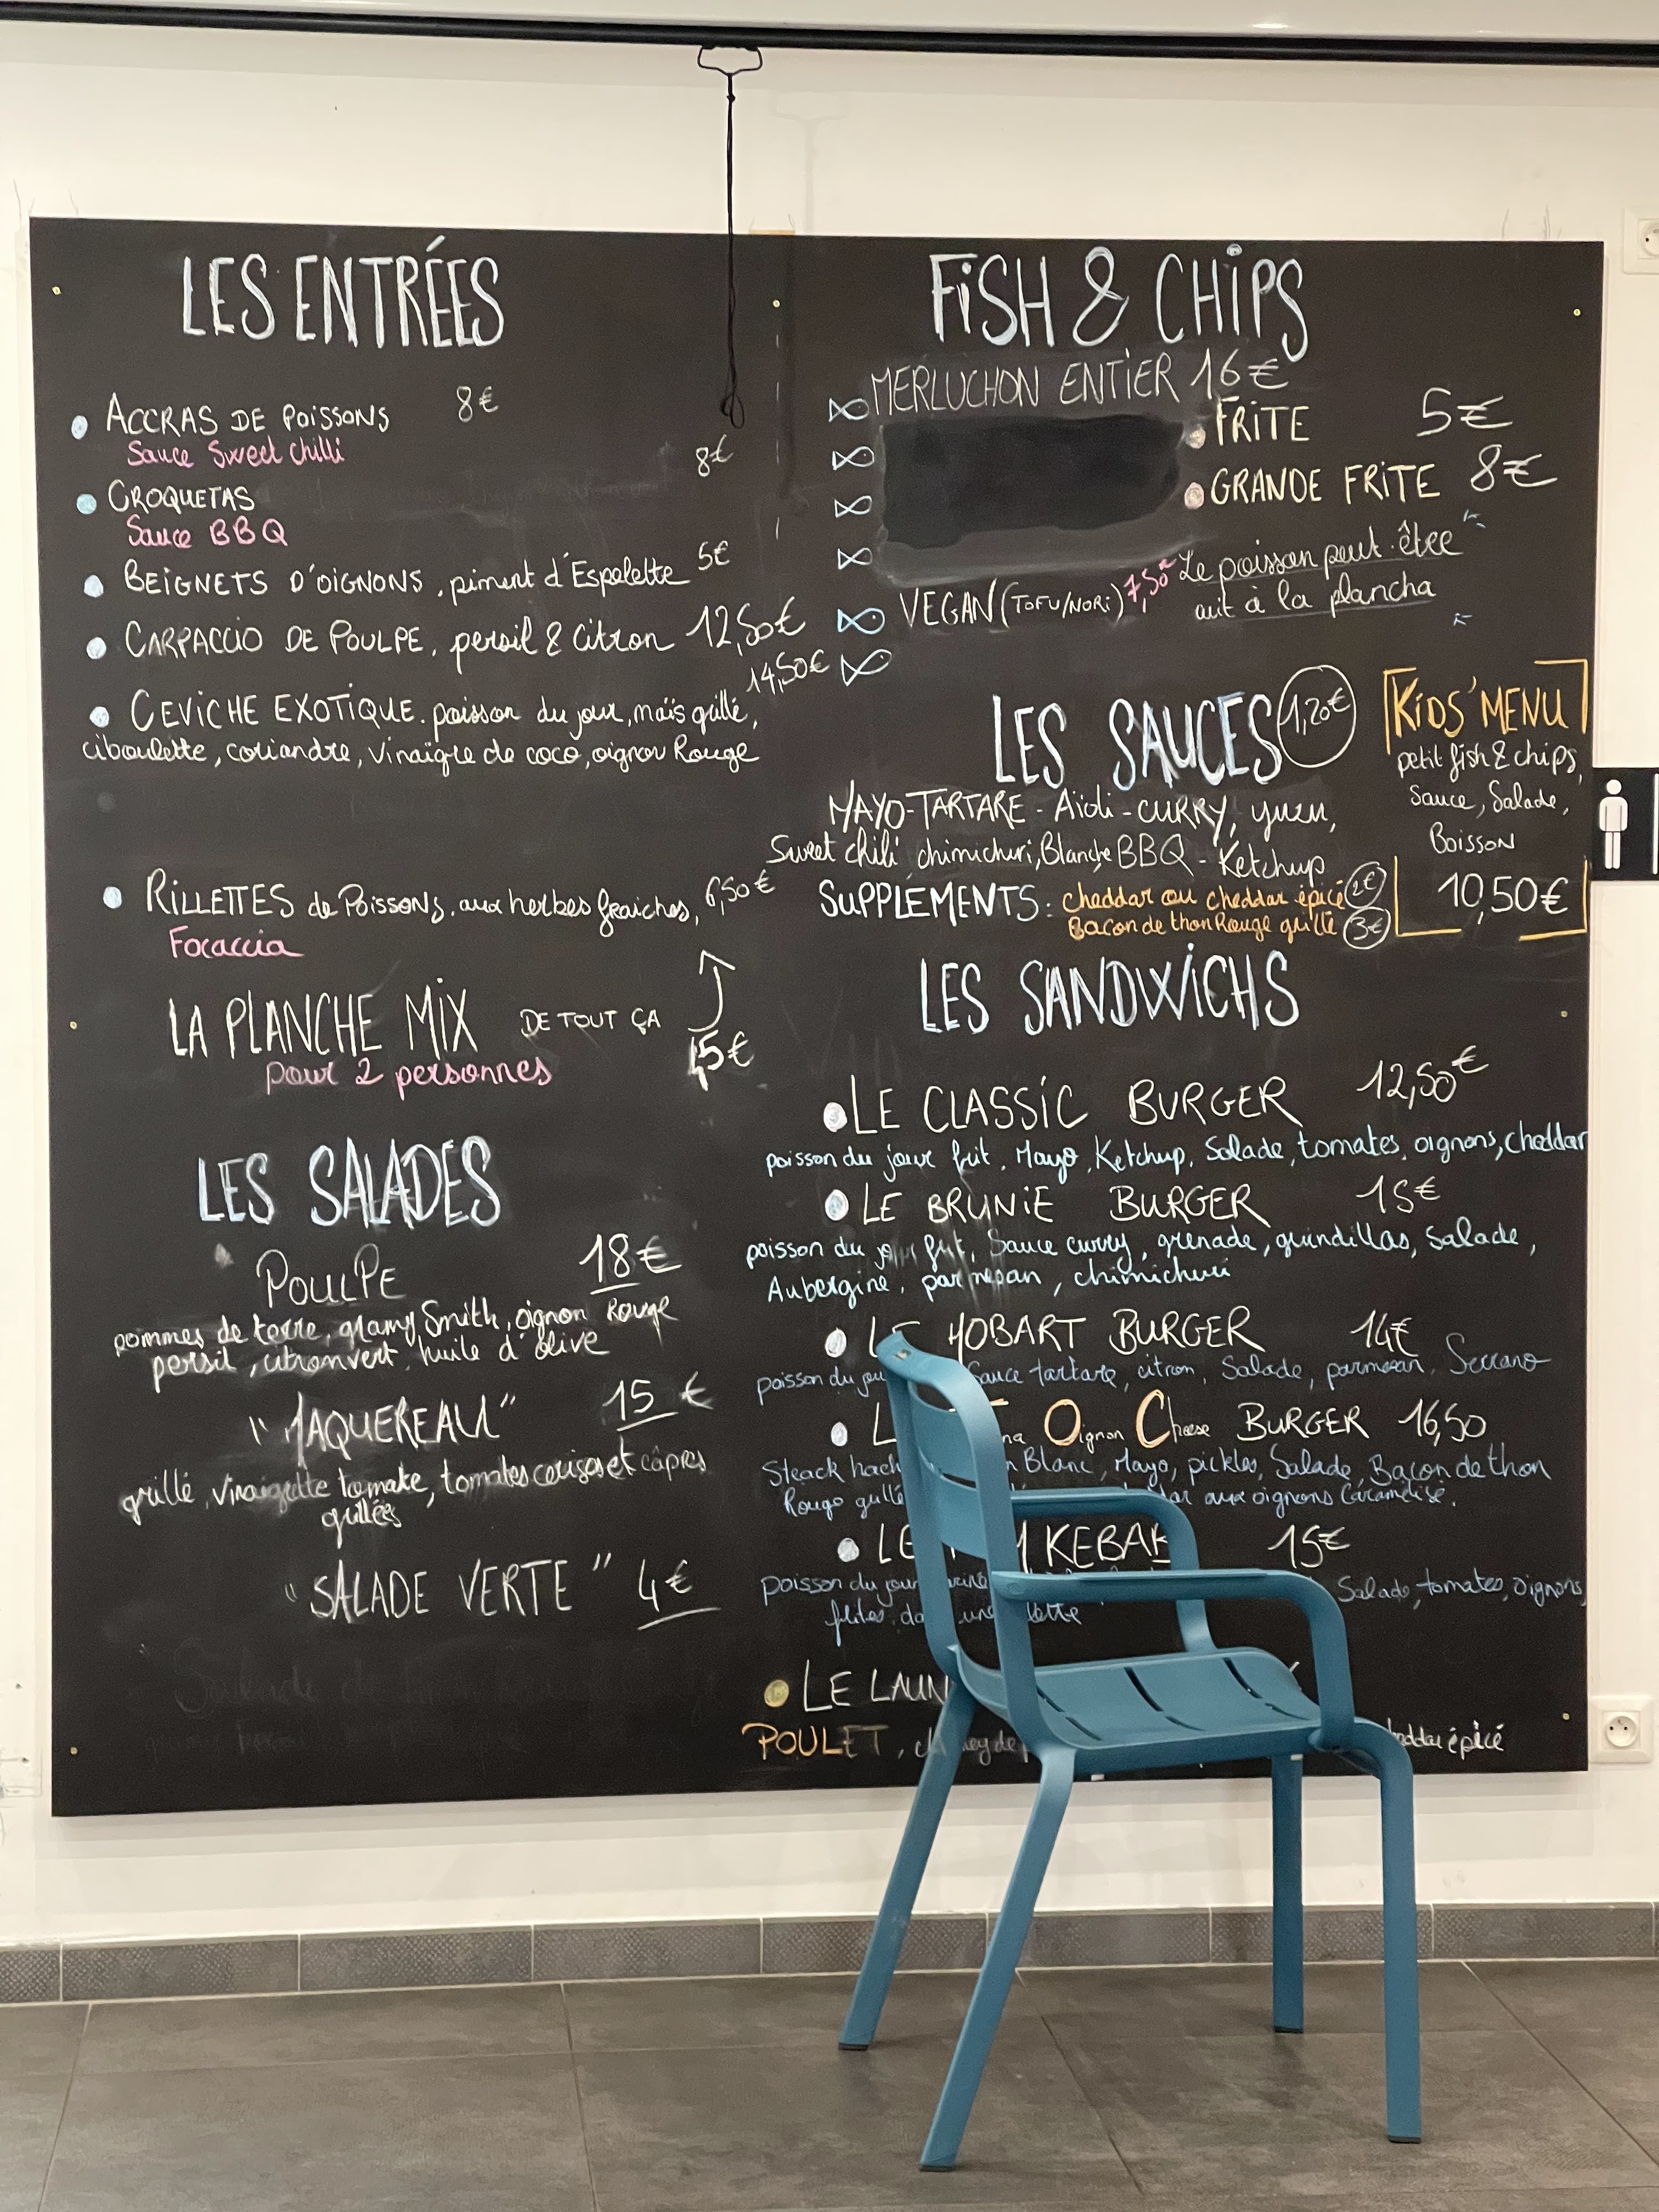 LES ENTRÉES
ACCRAS DE POISSONS 8€
Sauce Sweet Chilli
CROQUETAS 8€
Sauce BBQ
BEIGNETS D'OIGNONS, piment d'Espelette 5€
CARPACCIO DE POULPE, persil & Citron 12,50€
CEVICHE EXOTIQUE. poisson du jour, maïs grillé, 14,50€
ciboulette, coriandre, vinaigre de coco, oignon Rouge
RILLETTES de Poissons, aux herbes fraiches, 6,50€
Focaccia
LA PLANCHE MIX DE TOUT ÇA
pour 2 personnes 45€
LES SALADES
POULPE 18€
pommes de terre, granny Smith, oignon Rouge
persil, citron vert, huile d'olive
"MAQUEREAU" 15 €
grillé, vinaigrette tomate, tomates cerises et câpres
grillées
"SALADE VERTE" 4€
FISH & CHIPS
MERLUCHON ENTIER 16€
FRITE 5€
GRANDE FRITE 8€
Le poisson peut être
cuit à la plancha
VEGAN (TOFU/NORI) 7,50€
LES SAUCES 1,20€
MAYO-TARTARE - Aïoli - CURRY, yuzu,
Sweet chili, chimichuri, Blanche BBQ - Ketchup
SUPPLÉMENTS: cheddar ou cheddar épicé 2€
Bacon de thon Rouge grillé 3€
KIDS' MENU
petit fish & chips,
Sauce, Salade,
Boisson
10,50€
LES SANDWICHS
LE CLASSIC BURGER 12,50€
poisson du jour frit, Mayo, Ketchup, Salade, tomates, oignons, cheddar
LE BRUNIE BURGER 15€
poisson du jour frit, Sauce curry, grenade, guindillas, Salade,
Aubergine, parmesan, chimichuri
LE HOBART BURGER 14€
poisson du jou Sauce tartare, citron, Salade, parmesan, Serrano
L na Oignon Cheese BURGER 16,50
Steack hach n Blanc, Mayo, pickles, Salade, Bacon de thon
Rouge grillé aux oignons Caramélisé.
LE KEBAB 15€
poisson du jour Salade, tomates, oignons,
frites, da une
LE LAUN
POULET, épicé